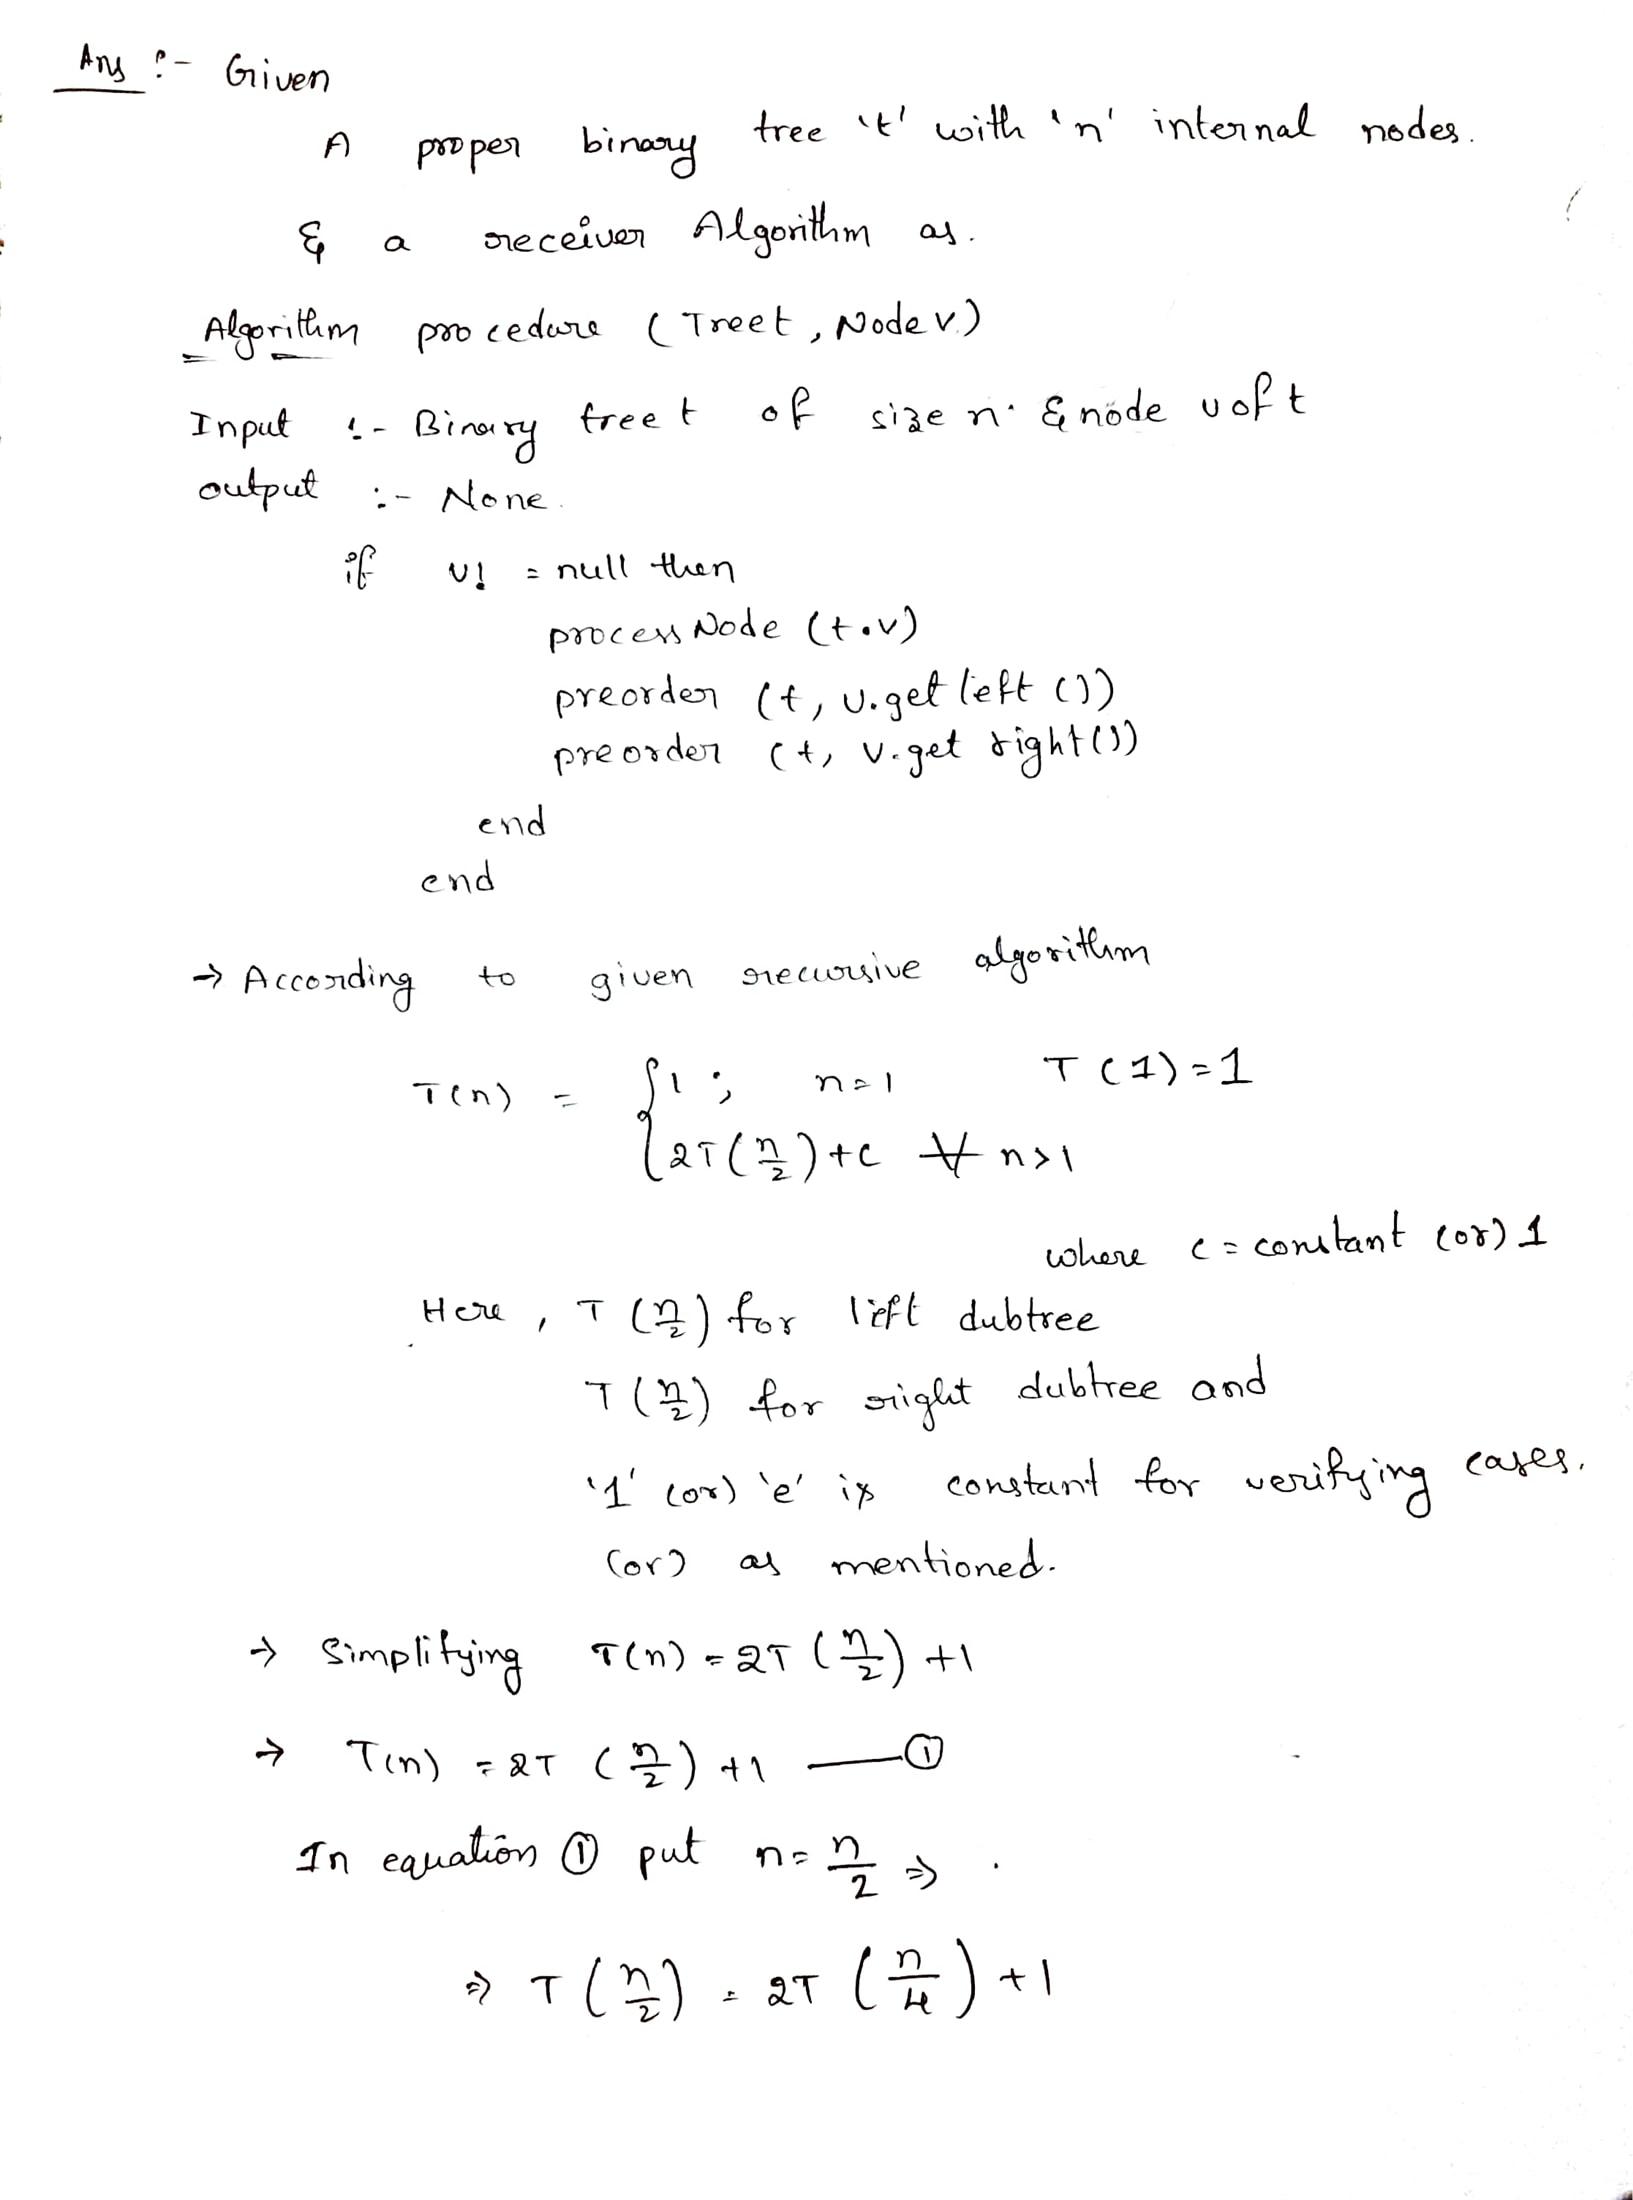 Ans :- Given
A proper binary tree 't' with 'n' internal nodes.
& a receiver Algorithm as.
Algorithm procedure (Treet, Node v)
Input :- Binary tree t of size n. & node v of t
output :- None.
if v! = null then
process Node (t.v)
preorder (t, v.get left ())
preorder (t, v.get right())
end
end
→ According to given recursive algorithm
T(n) = { 1 ; n=1 T(1)=1
2T(n/2)+c ∀ n>1
where c = constant (or) 1
Here, T(n/2) for left dubtree
T(n/2) for right dubtree and
'1' (or) 'e' is constant for verifying cases.
(or) as mentioned.
→ Simplifying T(n) = 2T(n/2) +1
→ T(n) = 2T(n/2) +1 — ①
In equation ① put n = n/2 ⇒
⇒ T(n/2) = 2T(n/4) +1